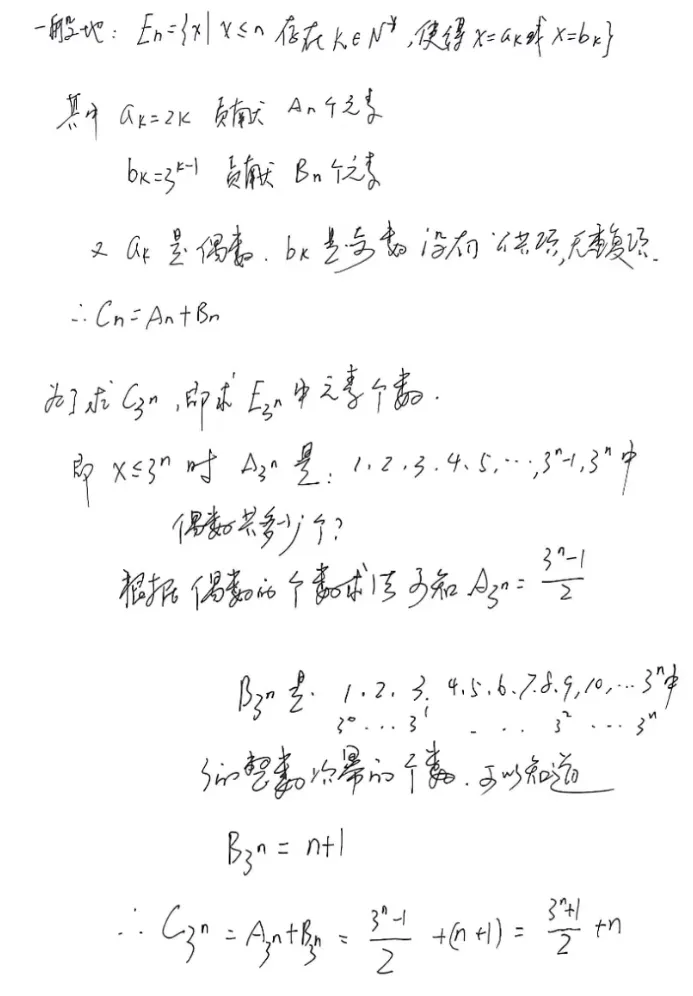 一般地: Eₙ={x| x≤n 存在 k∈N*, 使得 x=aₖ或 x=bₖ}
其中 aₖ=2k 贡献 Aₙ个元素
bₖ=3^{k-1} 贡献 Bₙ个元素
又 aₖ 是偶数. bₖ是奇数 没有公共项,无重复项.
∴Cₙ=Aₙ+Bₙ
为了求 C_{3^n},即求 E_{3^n}中元素个数.
即 x≤3^n 时 A_{3^n} 是: 1.2.3.4.5,…,3^n-1,3^n中
偶数共多少个?
根据偶数的个数求法可知 A_{3^n}=(3^n-1)/2
B_{3^n}是. 1.2.3. 4.5.6.7.8.9,10,…3^n中
3^0…3^1 … 3^2 …3^n
3的整数次幂的个数.可以知道
B_{3^n}=n+1
∴ C_{3^n}=A_{3^n}+B_{3^n}=(3^n-1)/2+(n+1)=(3^n+1)/2+n